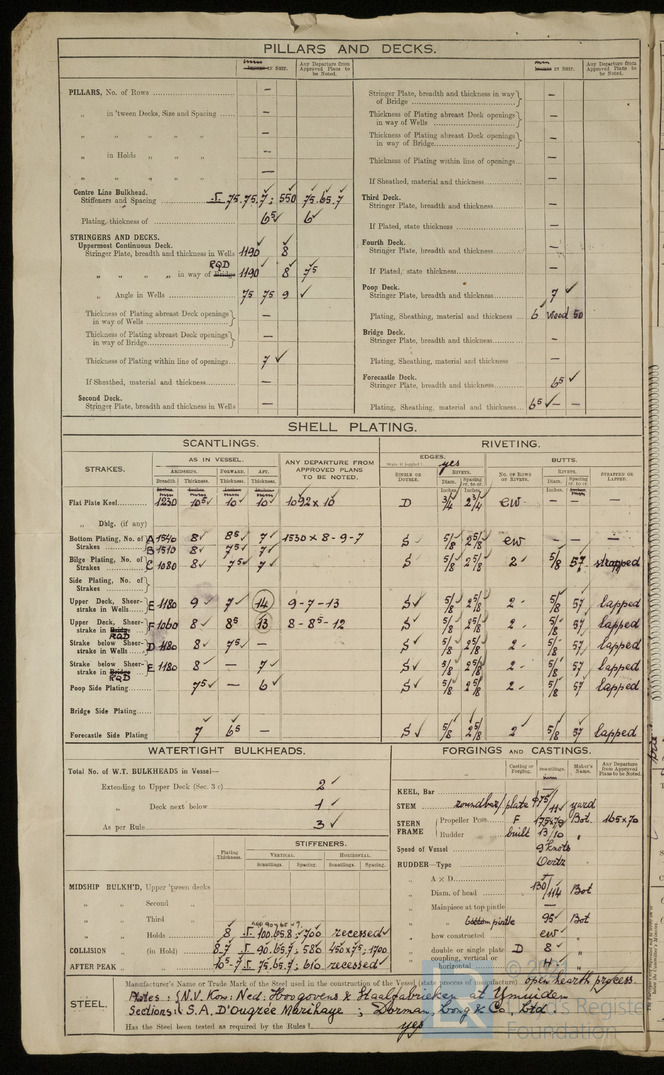 PILLARS AND DECKS.
IN SHIP.
Any Departure from Approved Plans to be Noted.
PILLARS, No. of Rows —
„ in 'tween Decks, Size and Spacing —
„ „ „ „ —
„ in Holds „ „ —
„ „ „ „ —
Centre Line Bulkhead.
Stiffeners and Spacing 75.75.7 : 550 75.65.7
Plating, thickness of 6⁵ ✓ 6 ✓
STRINGERS AND DECKS.
Uppermost Continuous Deck.
Stringer Plate, breadth and thickness in Wells 1190 8
„ „ „ „ in way of Bridge RQD 1190 8 7⁵
„ Angle in Wells 75 75 9 ✓
Thickness of Plating abreast Deck openings in way of Wells —
Thickness of Plating abreast Deck openings in way of Bridge —
Thickness of Plating within line of openings 7 ✓
If Sheathed, material and thickness —
Second Deck.
Stringer Plate, breadth and thickness in Wells —
IN SHIP.
Any Departure from Approved Plans to be Noted.
Stringer Plate, breadth and thickness in way of Bridge —
Thickness of Plating abreast Deck openings in way of Wells —
Thickness of Plating abreast Deck openings in way of Bridge —
Thickness of Plating within line of openings —
If Sheathed, material and thickness —
Third Deck.
Stringer Plate, breadth and thickness —
If Plated, state thickness —
Fourth Deck.
Stringer Plate, breadth and thickness —
If Plated, state thickness —
Poop Deck.
Stringer Plate, breadth and thickness 7 ✓
Plating, Sheathing, material and thickness 6 wood 50
Bridge Deck.
Stringer Plate, breadth and thickness —
Plating, Sheathing, material and thickness —
Forecastle Deck.
Stringer Plate, breadth and thickness 6⁵ ✓
Plating, Sheathing, material and thickness 6⁵ ✓ — —
SHELL PLATING.
SCANTLINGS. RIVETING.
STRAKES.
AS IN VESSEL.
AMIDSHIPS. FORWARD. AFT.
Breadth. Thickness. Thickness. Thickness.
ANY DEPARTURE FROM APPROVED PLANS TO BE NOTED.
EDGES. yes
BUTTS.
SINGLE OR DOUBLE.
RIVETS.
Diam. Spacing cr. to cr.
NO. OF ROWS OF RIVETS.
RIVETS.
Diam. Spacing cr. to cr.
STRAPPED OR LAPPED.
Flat Plate Keel 1230 10⁵ 10 10 1092 x 10 D 3/4 2 3/4 ew — — —
„ Dblg. (if any)
Bottom Plating, No. of Strakes A 1540 8 8⁵ 7 1530 x 8 - 9 - 7 S 5/8 2 5/8 ew — —
B 1510 8 7⁵ 7
Bilge Plating, No. of Strakes C 1080 8 7⁵ 7 S 5/8 2 5/8 2 5/8 57 strapped
Side Plating, No. of Strakes
Upper Deck, Sheerstrake in Wells E 1180 9 7 14 9 - 7 - 13 S 5/8 2 5/8 2 5/8 57 lapped
Upper Deck, Sheerstrake in Bridge RQD F 1060 8 8⁵ 13 8 - 8⁵ - 12 S 5/8 2 5/8 2 5/8 57 lapped
Strake below Sheerstrake in Wells D 1180 8 7⁵ — S 5/8 2 5/8 2 5/8 57 lapped
Strake below Sheerstrake in Bridge RQD E 1180 8 — 7 S 5/8 2 5/8 2 5/8 57 lapped
Poop Side Plating 7⁵ — 6 S 5/8 2 5/8 2 5/8 57 lapped
Bridge Side Plating
Forecastle Side Plating 7 6⁵ — S 5/8 2 5/8 2 5/8 57 lapped
WATERTIGHT BULKHEADS.
Total No. of W.T. BULKHEADS in Vessel—
Extending to Upper Deck (Sec. 3 c) 2 ✓
„ Deck next below 1 ✓
As per Rule 3 ✓
Plating Thickness.
STIFFENERS.
VERTICAL. HORIZONTAL.
Scantlings. Spacing. Scantlings. Spacing.
MIDSHIP BULKH'D, Upper 'tween decks
„ „ Second „
„ „ Third „
„ „ Holds 8 100.65.8 : 700 recessed
COLLISION „ (in Hold) 8-7 90.65.7 : 580 450x75 : 1700
AFTER PEAK „ „ 10⁵-7 75.65.7 : 610 recessed
FORGINGS AND CASTINGS.
Casting or Forging. Scantlings. Maker's Name. Any Departure from Approved Plans to be Noted.
KEEL, Bar —
STEM roundbar/plate φ75/11 yard
STERN FRAME Propeller Post F 175x79 Bot. 165x70
Rudder „ built 13/10 „
Speed of Vessel 9 knots
RUDDER—Type Oertz
„ A x D —
„ Diam. of head 130/114 Bot
„ Mainpiece at top pintle —
„ bottom pintle 95 Bot
„ how constructed ew
„ double or single plate D 8 „
„ coupling, vertical or horizontal H „
STEEL.
Manufacturer's Name or Trade Mark of the Steel used in the construction of the Vessel (state process of manufacture) open hearth process.
Plates : N.V. Kon: Ned. Hoogovens & Staalfabrieken at Ymuiden
Sections : S.A. D'Ougrée Marihaye ; Dorman, Long & Co, Ltd
Has the Steel been tested as required by the Rules? yes
Lloyd's Register
Foundation